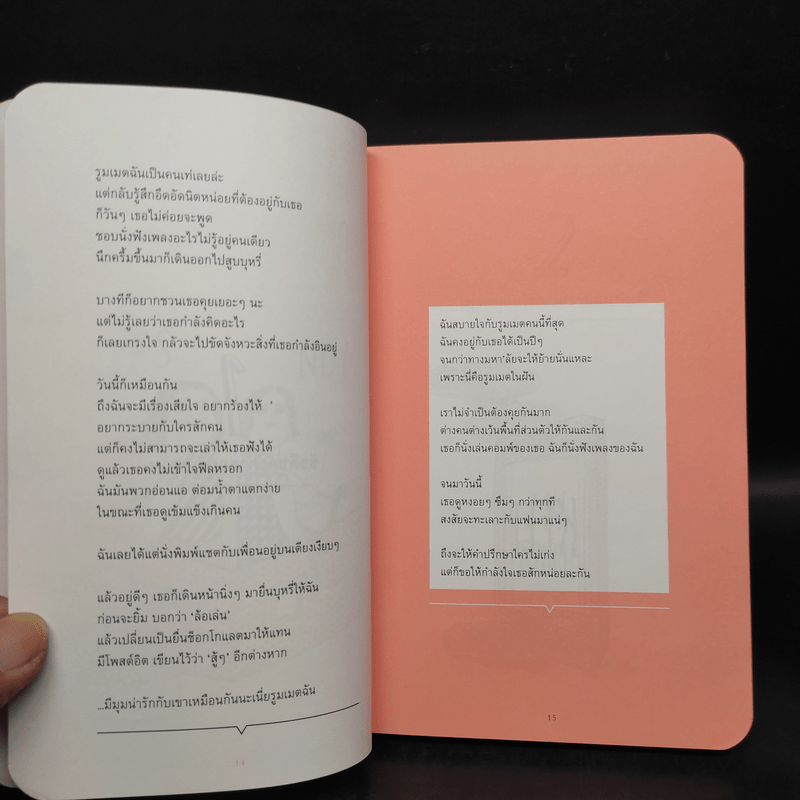 รูมเมตฉันเป็นคนเท่เลยล่ะ
แต่กลับรู้สึกอึดอัดนิดหน่อยที่ต้องอยู่กับเธอ
ก็วันๆ เธอไม่ค่อยจะพูด
ชอบนั่งฟังเพลงอะไรไม่รู้อยู่คนเดียว
นึกครึ้มขึ้นมาก็เดินออกไปสูบบุหรี่
บางทีก็อยากชวนเธอคุยเยอะๆ นะ
แต่ไม่รู้เลยว่าเธอกำลังคิดอะไร
ก็เลยเกรงใจ กลัวจะไปขัดจังหวะสิ่งที่เธอกำลังอินอยู่
วันนี้ก็เหมือนกัน
ถึงฉันจะมีเรื่องเสียใจ อยากร้องไห้
อยากระบายกับใครสักคน
แต่ก็คงไม่สามารถจะเล่าให้เธอฟังได้
ดูแล้วเธอคงไม่เข้าใจฟีลหรอก
ฉันมันพวกอ่อนแอ ต่อมน้ำตาแตกง่าย
ในขณะที่เธอดูเข้มแข็งเกินคน
ฉันเลยได้แต่นั่งพิมพ์แชตกับเพื่อนอยู่บนเตียงเงียบๆ
แล้วอยู่ดีๆ เธอก็เดินหน้านิ่งๆ มายื่นบุหรี่ให้ฉัน
ก่อนจะยิ้ม บอกว่า ‘ล้อเล่น’
แล้วเปลี่ยนเป็นยื่นช็อกโกแลตมาให้แทน
มีโพสต์อิต เขียนไว้ว่า ‘สู้ๆ’ อีกต่างหาก
...มีมุมน่ารักกับเขาเหมือนกันนะเนี่ยรูมเมตฉัน
14
ฉันสบายใจกับรูมเมตคนนี้ที่สุด
ฉันคงอยู่กับเธอได้เป็นปีๆ
จนกว่าทางมหา'ลัยจะให้ย้ายนั่นแหละ
เพราะนี่คือรูมเมตในฝัน
เราไม่จำเป็นต้องคุยกันมาก
ต่างคนต่างเว้นพื้นที่ส่วนตัวให้กันและกัน
เธอก็นั่งเล่นคอมพ์ของเธอ ฉันก็นั่งฟังเพลงของฉัน
จนมาวันนี้
เธอดูหงอยๆ ซึมๆ กว่าทุกที
สงสัยจะทะเลาะกับแฟนมาแน่ๆ
ถึงจะให้คำปรึกษาใครไม่เก่ง
แต่ก็ขอให้กำลังใจเธอสักหน่อยละกัน
15